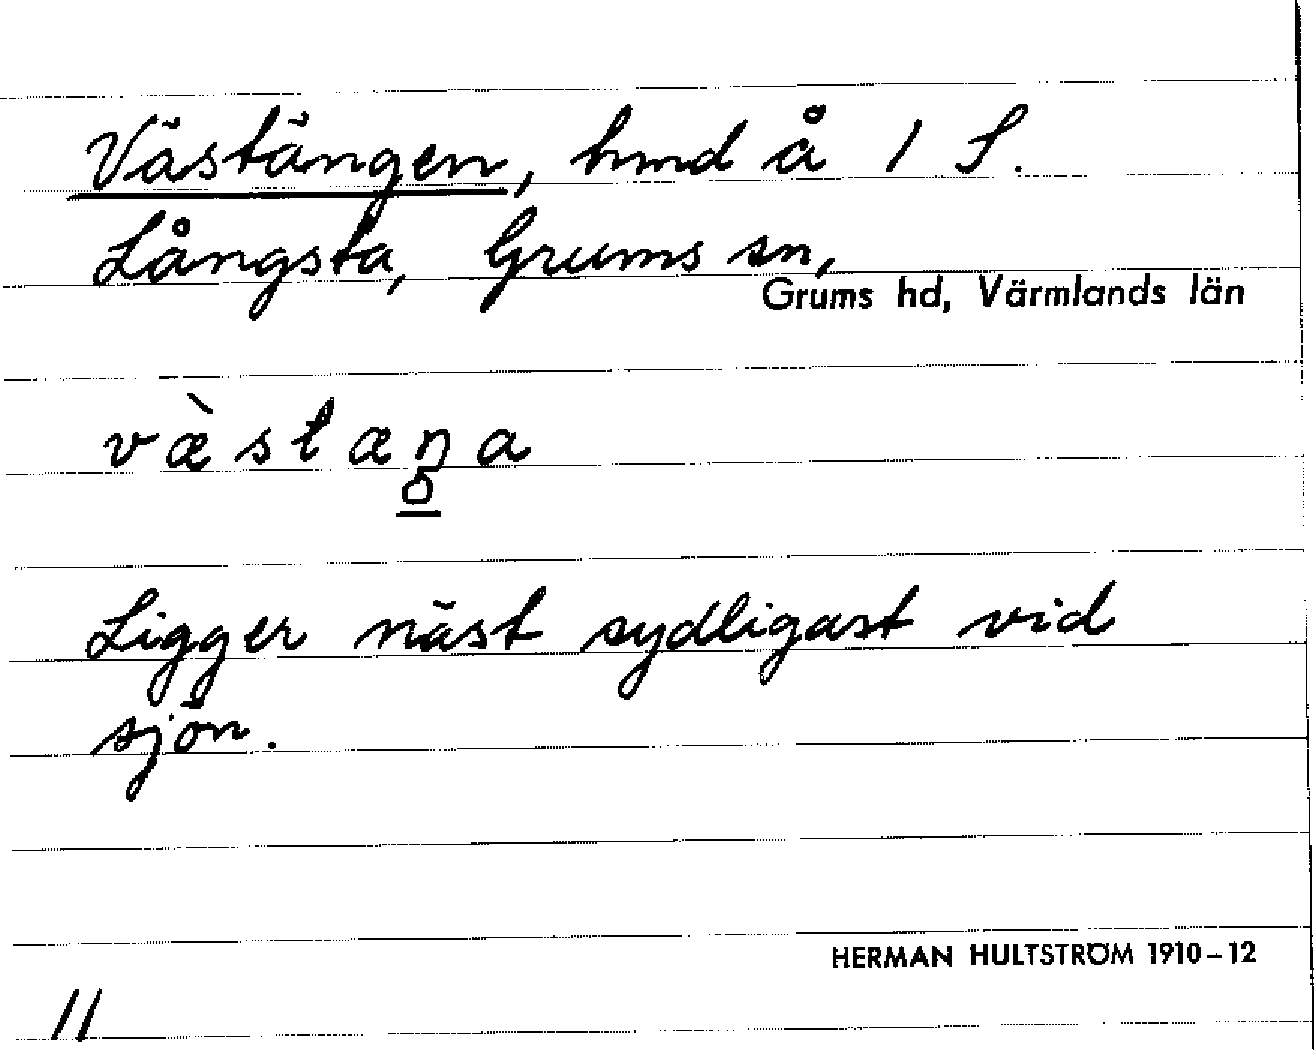 Västängen, hmd å 1 S.
Långsta, Grums sn,
Grums hd, Värmlands län
væ̀stæŋa
o
Ligger näst sydligast vid
sjön.
HERMAN HULTSTRÖM 1910–12
11